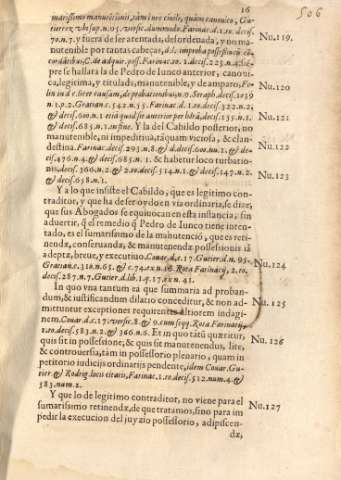 16
506
marissimo manutẽtionis, tàm iure civile, quàm canonico, Gu-
tierrez, vbi sup. n. 95. versic. dummodo. Farinac. d. 1. to. decis.
70. n. 7. y fuera de ser atentada, desordenada, y no ma-
Nu. 119.
nutenible por tantas cabeças, d. l. improba possessio
C. de adquir. poss. Farinac. to. 1. decis. 225. n. 4. siẽ-
pre se hallara la de Pedro de Iunco anterior, canoni-
ca, legitima, y titulada, manutenible, y de amparo,
Nu. 120
lin. in d. c. licet causam, de probationibus, n. 9. Seraph. decis. 1039
n. 1. p. 2. Gratian c. 542. n. 35. Farinac. d. 1. to. decis. 322. n. 2.
& decis. 600. n. 1. etiã quod sit anterior per biduũ, decis. 135. n. 1.
Nu. 121
& decis. 685. n. 1. in fine. Y la del Cabildo posterior, no
manutenible, ni impeditiua, tã quam viciosa, & clan-
Nu. 122
destina. Farinac. decis. 293. n. 8. & d. decis. 600. nu. 2. & de-
cis. 476. n. 4. & decis. 685. n. 1. & habetur loco turbatio-
nis, decis. 366. n. 2. & 2. to. decis. 514. n. 1. & decis. 147. n. 2.
Nu. 123
& decis. 658. n. 1.
Y a lo que insiste el Cabildo, que es legitimo con-
traditor, y que ha de ser oydo en via ordinaria, se dize,
que sus Abogados se equiuocan en esta instancia, sin
aduertir, q̃ el remedio q̃ Pedro de Iunco tiene inten-
tado, es el sumarissimo de la manutenció, que es reti-
nendæ, conseruandæ, & manutenendæ possessionis iã
adeptæ, breue, y executiuo. Couar. d. c. 17. Gutier. d. n. 95.
Nu. 124
Gratian. c. 318. n. 65. & c. 74. ex n. 18. Rota Farinacij, 2. to.
decis. 287. n. 7. Gutier. d. lib. 1. q. 17. ex n. 41.
In quo vna tantum ea quæ summaria ad proban-
dum, & iustificandum dilatio conceditur, & non ad-
Nu. 125
mittuntur exceptiones requirentes altiorem indagi-
nem. Couar. d. c. 17. versic. 8. & 9. cum seqq. Rota Farinacij,
1. to. decis. 583. n. 2. & 366. n. 6. Et in quo tãtũ quæritur,
Nu. 126
quis sit in possessione, & quis sit manutenendus, lite,
& controuersia, tàm in possessorio plenario, quam in
petitorio iudicijs ordinarijs pendente, idem Couar. Gu-
tier. & Rodrig. locis citatis, Farinac. 1. to. decis. 512. num. 4. &
583. num. 2.
Y que lo de legitimo contraditor, no viene para el
Nu. 127
sumarissimo retinendæ, de que tratamos, sino para im
pedir la execucion del juyzio possessorio, adipiscen-
dæ,